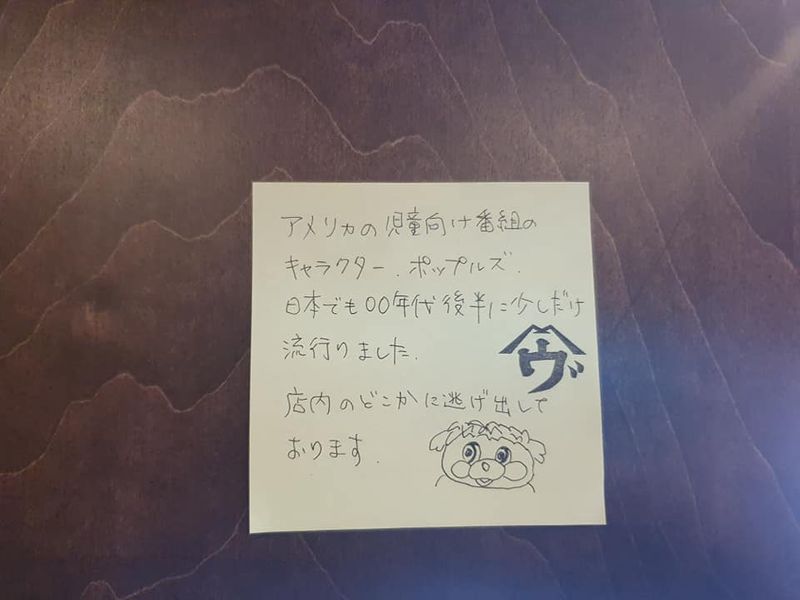 アメリカの児童向け番組の
キャラクター、ポップルズ、
日本でも00年代後半に少しだけ
流行りました。
ヴ
店内のどこかに逃げ出して
おります。